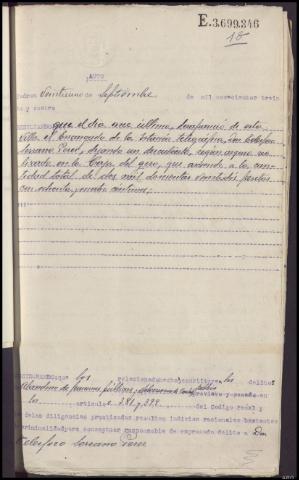 E.3.699.346
18
AUTO
Veintiuno de Septiembre de mil novecientos trein
ta y cuatro
que el día once último, desapareció de esta
Villa el Encargado de la Estación telegráfica, Don Telesforo
Lorano Perez, dejando un descubierto, según arqueo ve-
rificado en la Caja del giro, que asciende a la can-
tidad total de dos mil doscientas pesetas
con ochenta céntimos;
que los relacionados hechos constituyen los delitos
Abandono de funciones públicas, previsto y penado en
los artículos 381 y 399 del Codigo Penal y
de las diligencias practicadas resultan indicios racionales bastantes
criminalidad para conceptuar responsable de expresado delito a Don
Telesforo Lorano Perez